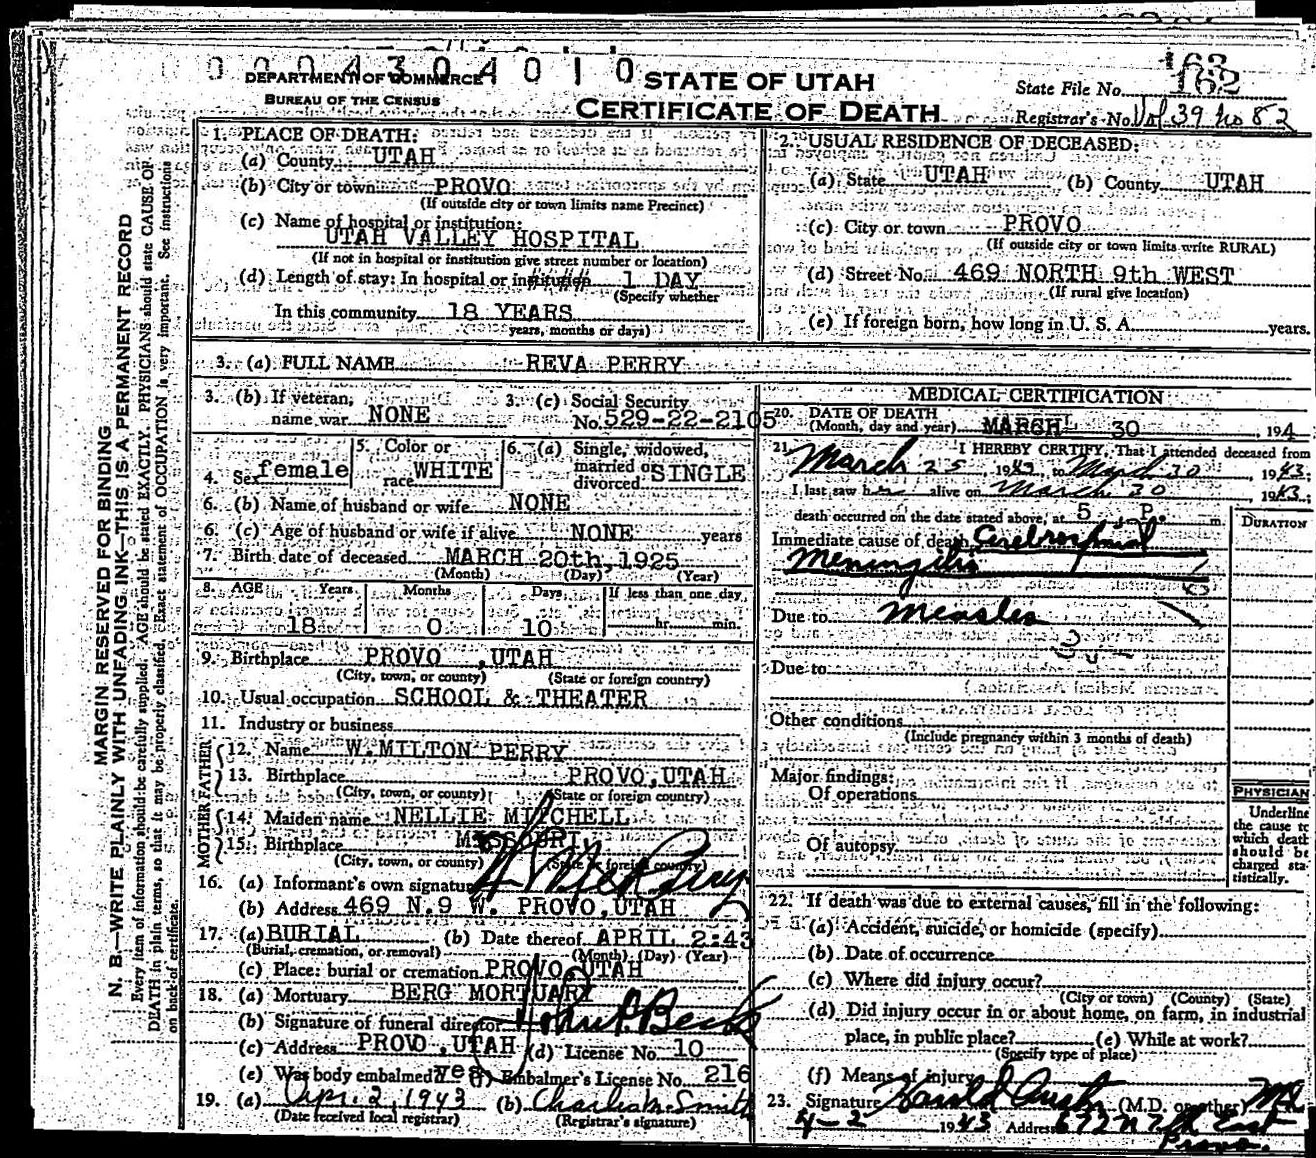 0 0 0 4 3 0 4 0 1 0
DEPARTMENT OF COMMERCE
BUREAU OF THE CENSUS
STATE OF UTAH
CERTIFICATE OF DEATH
163
State File No. 162
Registrar's No. Vol 39 no 82
MARGIN RESERVED FOR BINDING
N. B.—WRITE PLAINLY WITH UNFADING INK—THIS IS A PERMANENT RECORD
Every item of information should be carefully supplied. AGE should be stated EXACTLY. PHYSICIANS should state CAUSE OF
DEATH in plain terms, so that it may be properly classified. Exact statement of OCCUPATION is very important. See instructions
on back of certificate.
1. PLACE OF DEATH:
(a) County UTAH
(b) City or town PROVO
(If outside city or town limits name Precinct)
(c) Name of hospital or institution:
UTAH VALLEY HOSPITAL
(If not in hospital or institution give street number or location)
(d) Length of stay: In hospital or institution 1 DAY
(Specify whether
In this community 18 YEARS
years, months or days)
2. USUAL RESIDENCE OF DECEASED:
(a) State UTAH (b) County UTAH
(c) City or town PROVO
(If outside city or town limits write RURAL)
(d) Street No. 469 NORTH 9th WEST
(If rural give location)
(e) If foreign born, how long in U. S. A. years.
3. (a) FULL NAME REVA PERRY
3. (b) If veteran, name war NONE
3. (c) Social Security No. 529-22-2105
4. Sex female
5. Color or race WHITE
6. (a) Single, widowed, married or divorced SINGLE
6. (b) Name of husband or wife NONE
6. (c) Age of husband or wife if alive NONE years
7. Birth date of deceased MARCH 20th, 1925
(Month) (Day) (Year)
8. AGE Years Months Days If less than one day
18 0 10 hr. min.
9. Birthplace PROVO, UTAH
(City, town, or county) (State or foreign country)
10. Usual occupation SCHOOL & THEATER
11. Industry or business
FATHER
12. Name W. MILTON PERRY
13. Birthplace PROVO, UTAH
(City, town, or county) (State or foreign country)
MOTHER
14. Maiden name NELLIE MITCHELL
15. Birthplace MISSOURI
(City, town, or county) (State or foreign country)
16. (a) Informant's own signature
(b) Address 469 N. 9 W. PROVO, UTAH
17. (a) BURIAL (b) Date thereof APRIL 2:43
(Burial, cremation, or removal) (Month) (Day) (Year)
(c) Place: burial or cremation PROVO, UTAH
18. (a) Mortuary BERG MORTUARY
(b) Signature of funeral director
(c) Address PROVO, UTAH (d) License No. 10
(e) Was body embalmed? yes (f) Embalmer's License No. 216
19. (a) Apr. 2, 1943 (b) Charles M. Smith
(Date received local registrar) (Registrar's signature)
MEDICAL CERTIFICATION
20. DATE OF DEATH
(Month, day and year) MARCH 30, 194
21. I HEREBY CERTIFY, That I attended deceased from
March 25 1943 to March 30, 1943
I last saw her alive on March 30, 1943,
death occurred on the date stated above, at 5 P. m.
DURATION
Immediate cause of death Cerebrospinal
Meningitis
Due to Measles
Due to
Other conditions
(Include pregnancy within 3 months of death)
Major findings:
Of operations
Of autopsy
PHYSICIAN
Underline
the cause to
which death
should be
charged sta-
tistically.
22. If death was due to external causes, fill in the following:
(a) Accident, suicide, or homicide (specify)
(b) Date of occurrence
(c) Where did injury occur?
(City or town) (County) (State)
(d) Did injury occur in or about home, on farm, in industrial
place, in public place? (e) While at work?
(Specify type of place)
(f) Means of injury
23. Signature Harold Austin (M.D. or other) MD
4-2 1943 Address 672 N 7th East
Provo.